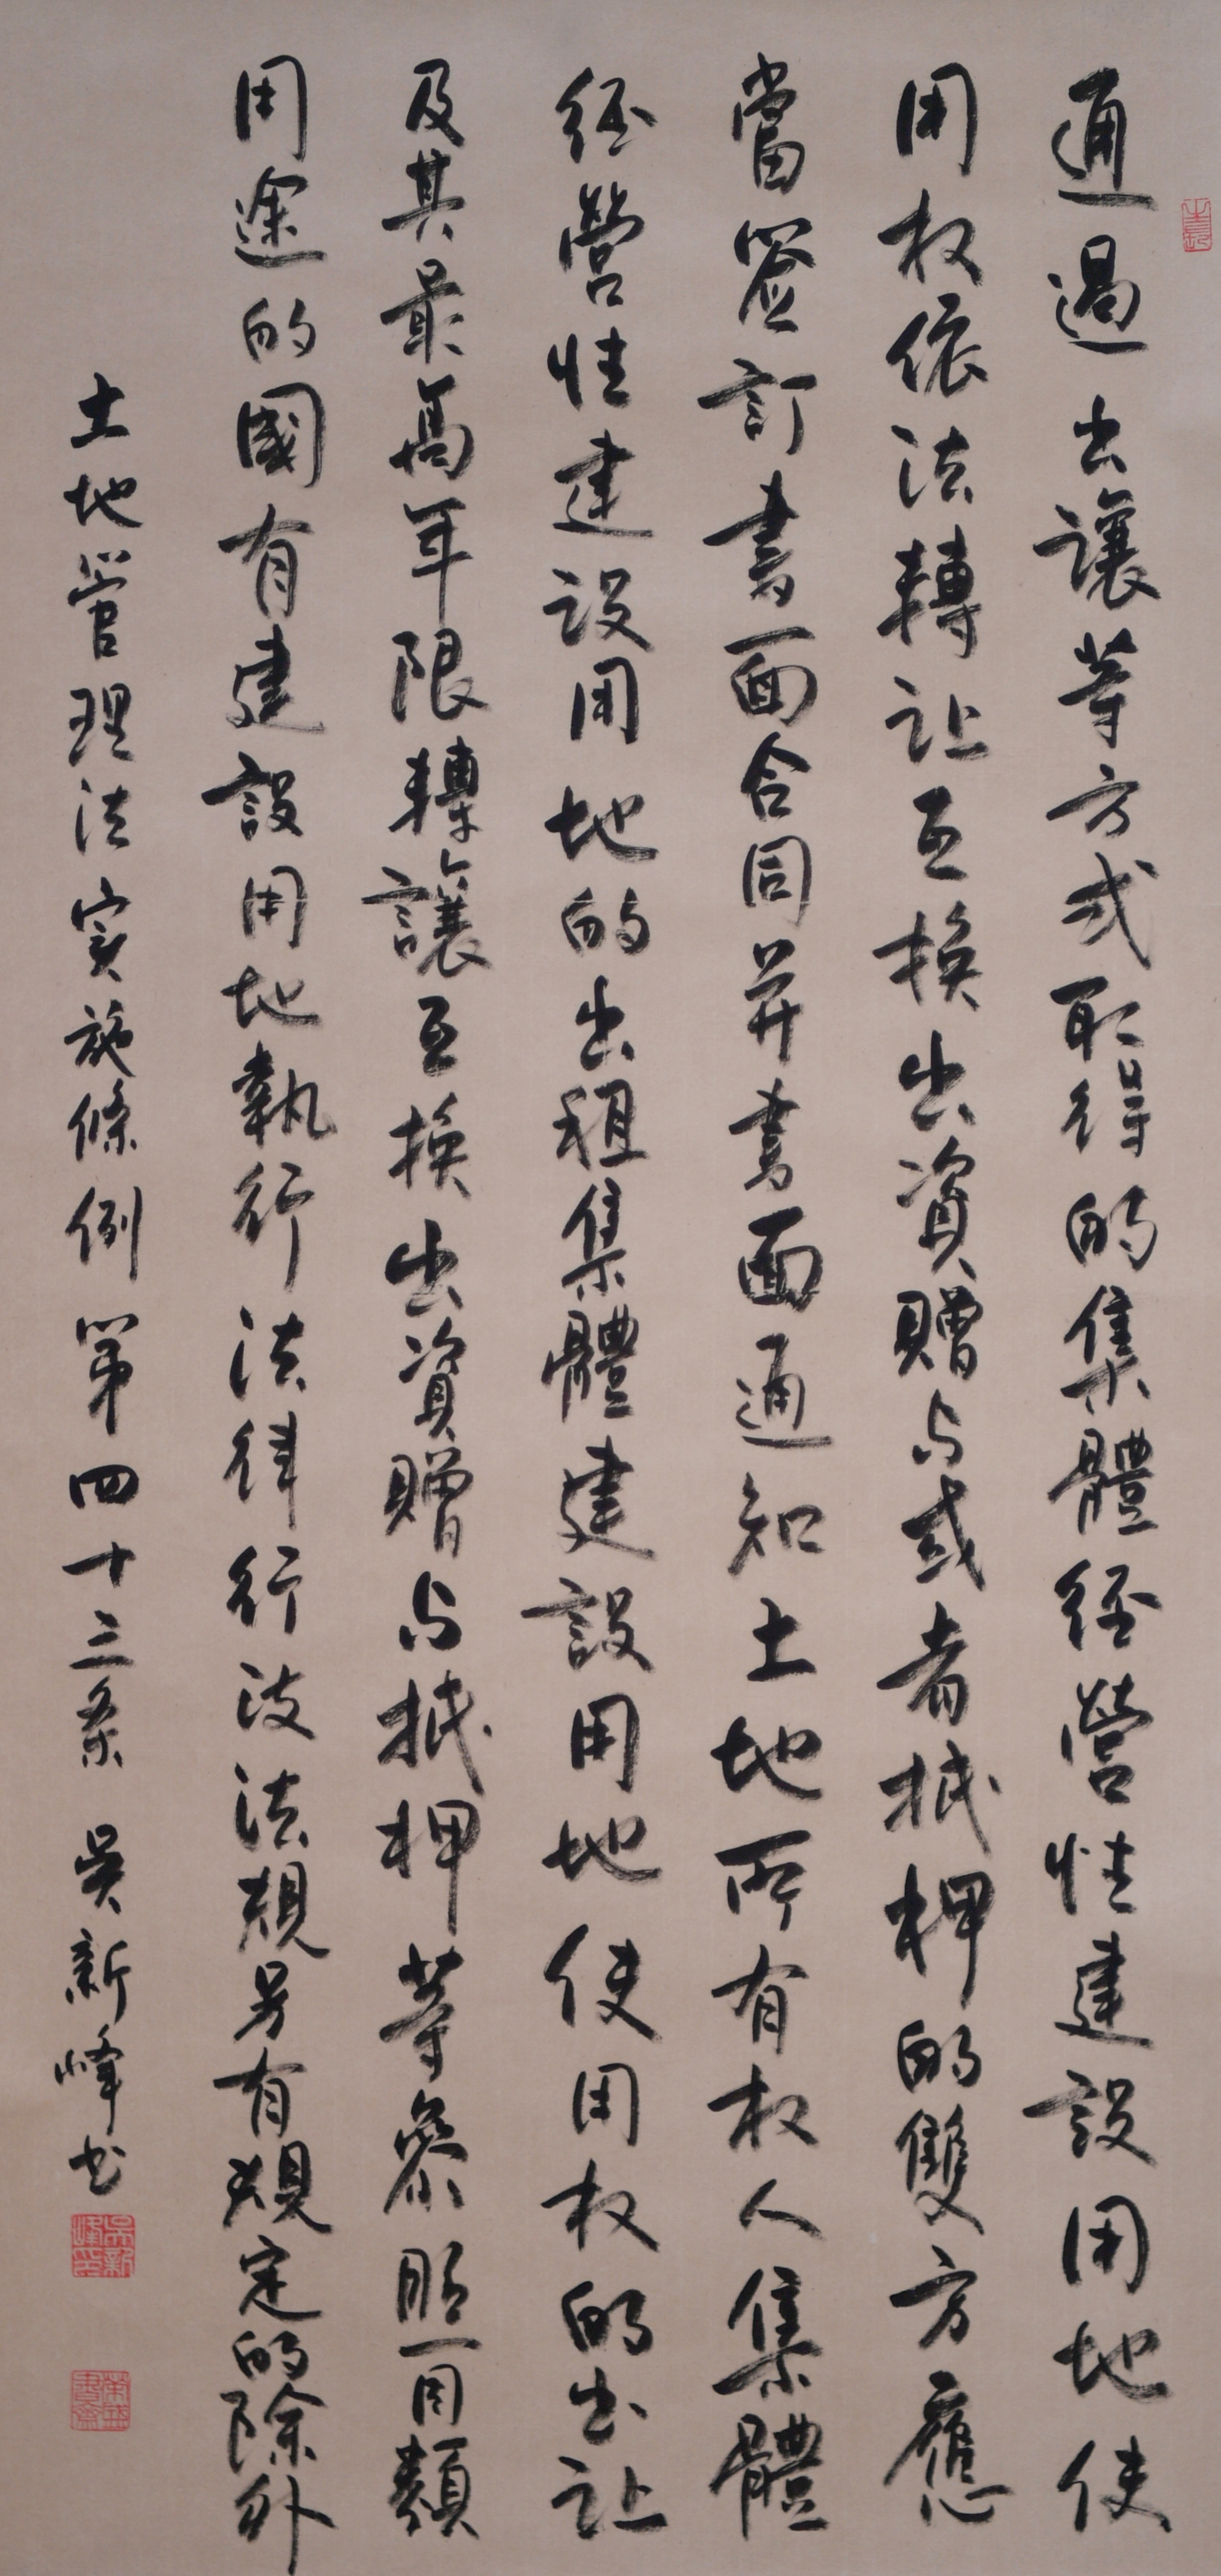 通過出讓等方式取得的集體经營性建設用地使
用权依法轉让互换出資贈与或者抵押的雙方應
當簽訂書面合同并書面通知土地所有权人集體
经營性建设用地的出租集體建設用地使用权的出让
及其最高年限轉讓互换出資贈与抵押等參照同類
用途的國有建設用地執行法律行政法規另有規定的除外
土地管理法实施條例第四十三条 吴新峰书
吴新峰印